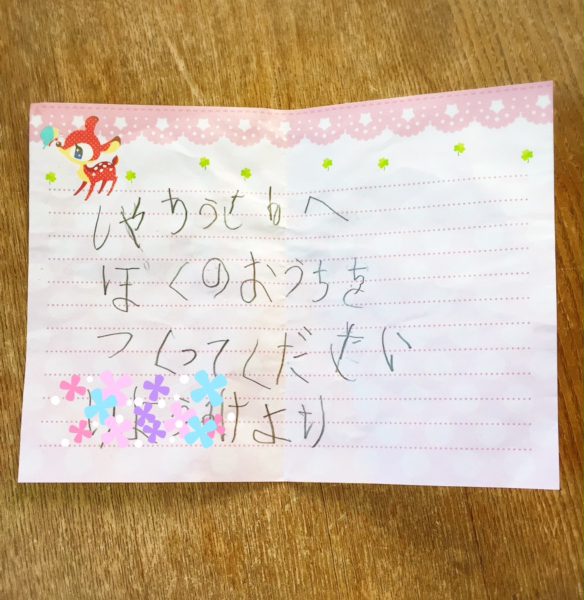 しやりうさんへ
ぼくのおうちを
つくってください
より